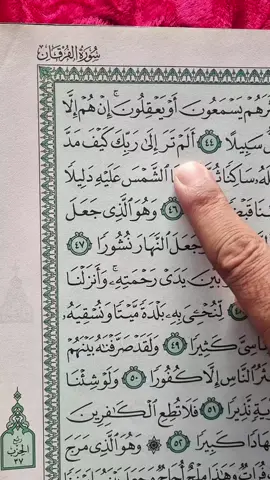 سُورَةُ الفُرْقَان
يَسْمَعُونَ أَوْ يَعْقِلُونَ ۚ إِنْ هُمْ إِلَّا
سَبِيلًا ٤٤ أَلَمْ تَرَ إِلَىٰ رَبِّكَ كَيْفَ مَدَّ
سَاكِنًا الشَّمْسَ عَلَيْهِ دَلِيلًا
٤٦ وَهُوَ الَّذِي جَعَلَ
وَجَعَلَ النَّهَارَ نُشُورًا ٤٧
بَيْنَ يَدَيْ رَحْمَتِهِ ۚ وَأَنزَلْنَا
لِّنُحْيِيَ بِهِ بَلْدَةً مَّيْتًا وَنُسْقِيَهُ
كَثِيرًا ٤٩ وَلَقَدْ صَرَّفْنَاهُ بَيْنَهُمْ
النَّاسِ إِلَّا كُفُورًا ٥٠ وَلَوْ شِئْنَا
نَّذِيرًا ٥١ فَلَا تُطِعِ الْكَافِرِينَ
كَبِيرًا ٥٢ ۞ وَهُوَ الَّذِي مَرَجَ
فُرَاتٌ وَهَٰذَا مِلْحٌ أُجَاجٌ وَجَعَلَ
ربع
الحزب
٣٧